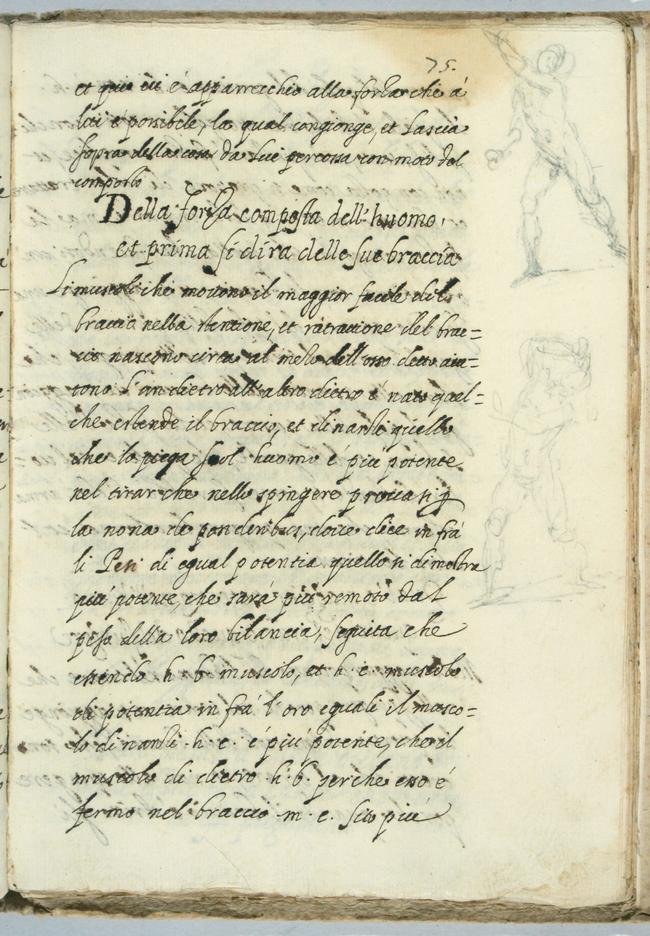 75.
et qui vi è apparrecchio alla forza che á
lui é possibile, la qual congionge, et Lascia
sopra della cosa da lui percossa con moto del
composto
Della forza composta dell'huomo,
et prima si dira delle sue braccia
Li muscoli che movono il maggior fucile del
braccio nella stensione, et ratractione del brac=
cio nascono circa al mezo dell'osso detto aiu=
tono l'un dietro all'altro dietro é nato quel=
che estende il braccio, et dinanzi quello
che lo piega se ol huomo é piu potente
nel tirar che nello spingere provasi p
la nona de ponderibus, dove dice in frá
li Pesi di egual potentia quello si dimostra
piú potente, che sará piú remoto dal
polo della loro bilancia, seguita che
essendo h. b. muscolo, et h. c. muscolo
di potentia in frá l'oro eguali il musco=
lo dinanzi .h. c. é piú potente, che il
muscolo di dietro .h. b. perche esso é
fermo nel braccio .m. c. sito piú